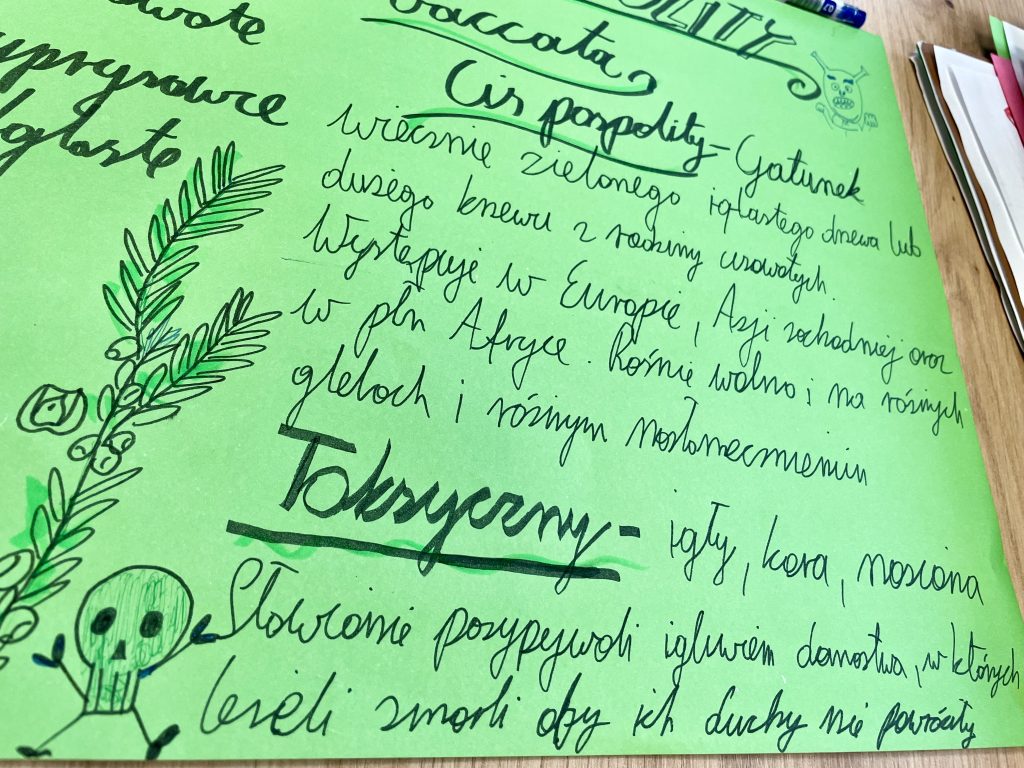 baccata
Cis pospolity - Gatunek
wiecznie zielonego iglastego drzewa lub
dużego krzewu z rodziny cisowatych.
Występuje w Europie, Azji zachodniej oraz
w płn Afryce. Rośnie wolno i na różnych
glebach i różnym nasłonecznieniu
Toksyczny - igły, kora, nasiona
Słowianie posypywali igliwiem domostwa, w których
leżeli zmarli aby ich duchy nie powróciły
iglaste